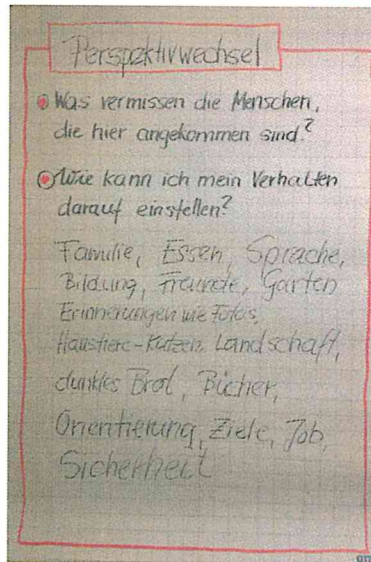 Perspektivwechsel
Was vermissen die Menschen,
die hier angekommen sind?
Wie kann ich mein Verhalten
darauf einstellen?
Familie, Essen, Sprache,
Bildung, Freunde, Garten
Erinnerungen wie Fotos,
Haustiere-Katzen, Landschaft,
dunkles Brot, Bücher,
Orientierung, Ziele, Job,
Sicherheit